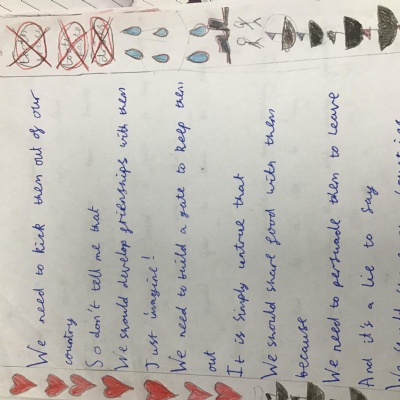 We need to kick them out of our
country
So don't tell me that
We should develop frienships with them
Just imagine!
We need to build a gate to keep them
out
It is simply untrue that
We should share food with them
because
We need to persuade them to leave
And it's a lie to say